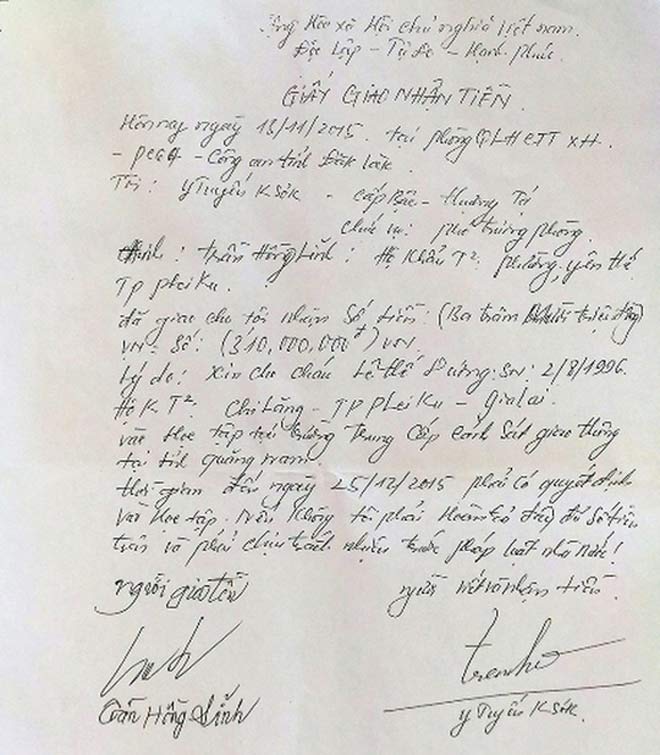 Cộng Hòa xã Hội chủ nghĩa Việt nam.
Độc Lập - Tự Do - Hạnh phúc.
GIẤY GIAO NHẬN TIỀN
Hôm nay ngày 13/11/2015. tại phòng QLHC TTXH.
- PC64 - Công an tỉnh Đăk Lăk.
Tôi: Y Tuyến KSơk - cấp Bậc - Thượng Tá
chức vụ: phó trưởng phòng.
Anh: Trần Hồng Lĩnh: Hộ Khẩu T²: phường, yên thế
Tp pleiku.
đã giao cho tôi nhận Số tiền: (Ba trăm Mười triệu đồng)
VN. Số: (310,000,000đ) VN.
Lý do: Xin cho cháu Lê thế Dương: SN: 2/8/1996.
Hộ K T²: Chi Lăng - TP PLeiKu - Gialai.
vào Học tập tại trường Trung Cấp cảnh Sát giao thông
tại tỉnh quảng nam
thời gian đến ngày 25/12/2015 phải có quyết định
vào học tập. Nếu không tôi phải Hoàn trả đầy đủ số tiền
trên và phải chịu trách nhiệm trước pháp luật nhà nước!
người giao tiền
người viết và nhận tiền.
Trần Hồng Lĩnh
Y Tuyến KSơk.